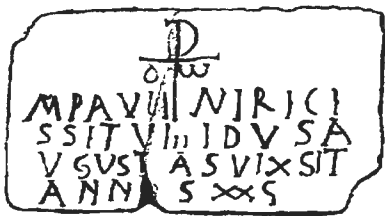 ☧
O ω
MPAVIII NIRICI
SSITVIII IDVSA
VGVST ASVIXSIT
ANNI S XXS